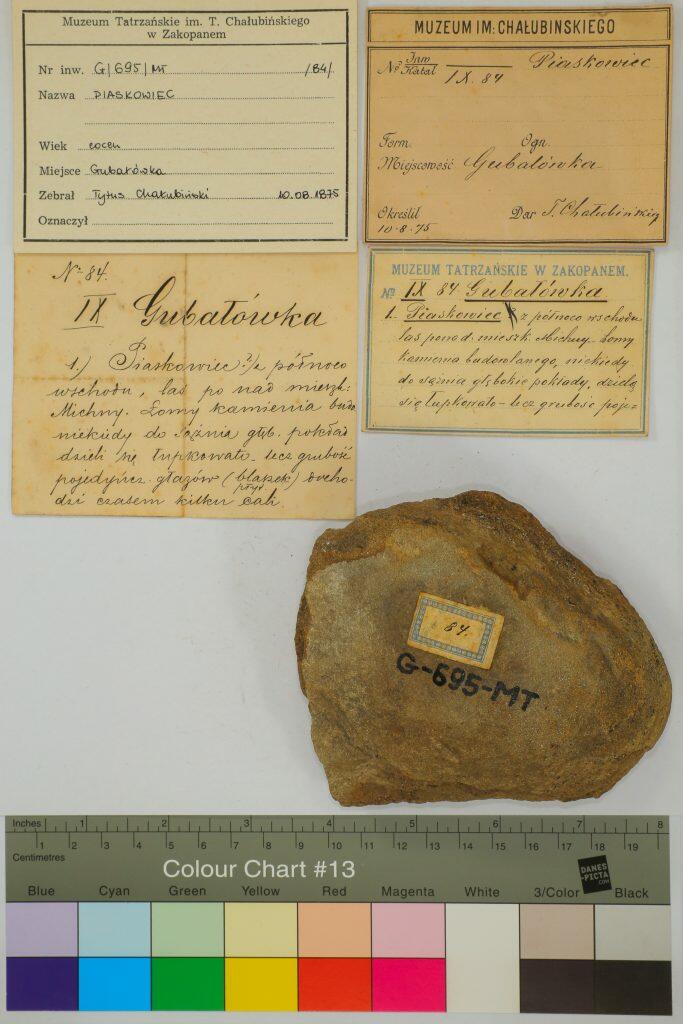 Muzeum Tatrzańskie im. T. Chałubińskiego
w Zakopanem
Nr inw. G/695/MT /84/.
Nazwa PIASKOWIEC
Wiek eocen
Miejsce Gubałówka
Zebrał Tytus Chałubiński 10.08.1875
Oznaczył
MUZEUM IM: CHAŁUBINSKIEGO
No Inw Katal IX. 84 Piaskowiec
Form. Ogn.
Miejscowość Gubałówka
Określił Dar T. Chałubińskiego
10-8-75
No 84.
IX Gubałówka
1.) Piaskowiec z północo
wschodu, las po nad mieszk:
Michny. Łomy kamienia budo
niekiedy do sążnia głęb. pokład
dzieli się łupkowato. lecz grubość
pojedyńcz. głazów (blaszek) docho-
płyt
dzi czasem kilku cali
MUZEUM TATRZAŃSKIE W ZAKOPANEM.
No IX 84 Gubałówka
1. Piaskowiec z północo wschodu
las ponad mieszk. Michny. Łomy
kamienia budowlanego, niekiedy
do sążnia głębokie pokłady, dzielą
się łupkowato - lecz grubość poje-
84.
G-695-MT
Inches 1 2 3 4 5 6 7 8
Centimetres 1 2 3 4 5 6 7 8 9 10 11 12 13 14 15 16 17 18 19
Colour Chart #13
DANES
-PICTA
.COM
Blue Cyan Green Yellow Red Magenta White 3/Color Black